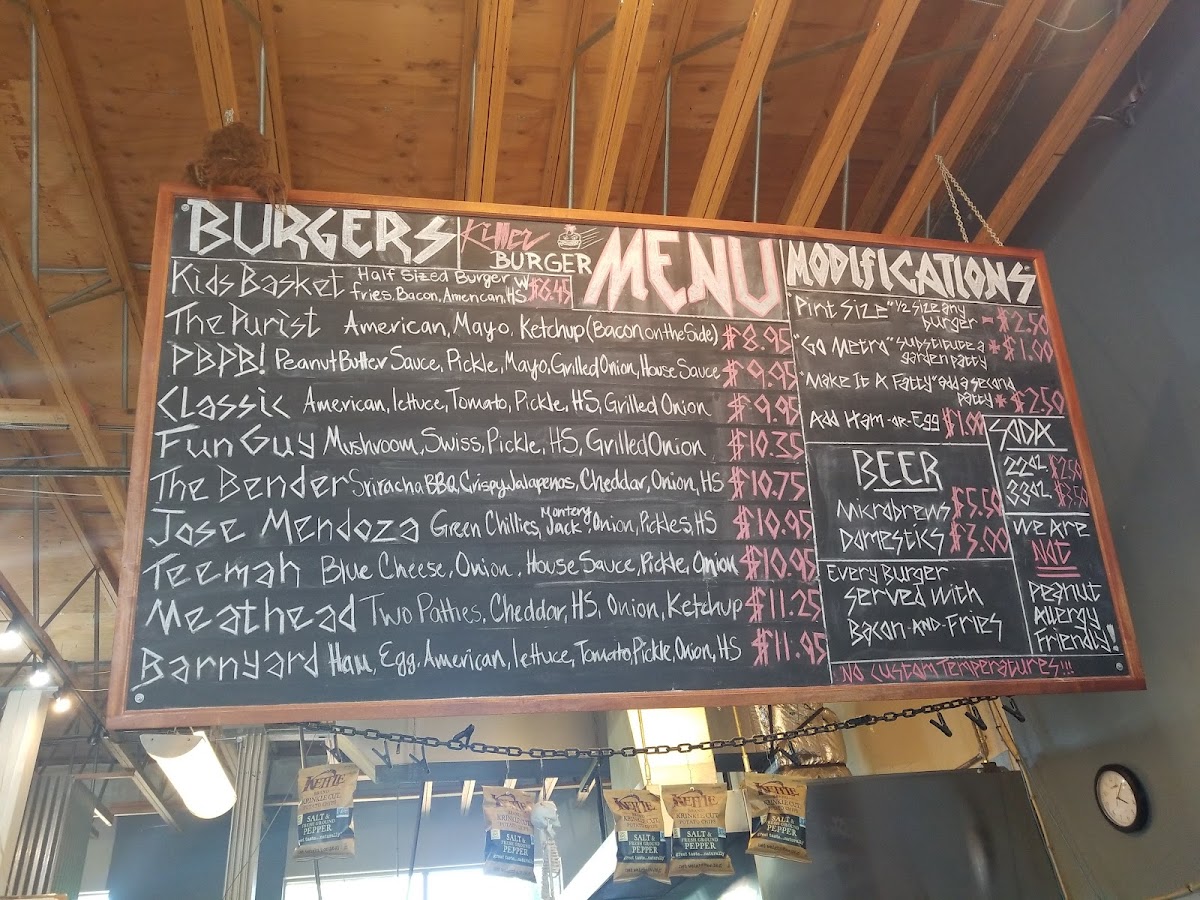 BURGERS
Killer
BURGER
MENU
Kids Basket Half Sized Burger w/
fries, Bacon, American, HS $8.45
The Purist American, Mayo, Ketchup (Bacon on the Side) $8.95
PBPB! Peanut Butter Sauce, Pickle, Mayo, Grilled Onion, House Sauce $9.95
Classic American, lettuce, Tomato, Pickle, HS, Grilled Onion $9.95
Fun Guy Mushroom, Swiss, Pickle, HS, Grilled Onion $10.35
The Bender Sriracha BBQ, Crispy Jalapenos, Cheddar, Onion, HS $10.75
Jose Mendoza Green Chillies, Monterey Jack, Onion, Pickles, HS $10.95
Teemah Blue Cheese, Onion, House Sauce, Pickle, Onion $10.95
Meathead Two Patties, Cheddar, HS, Onion, Ketchup $11.25
Barnyard Ham, Egg, American, lettuce, Tomato, Pickle, Onion, HS $11.95
MODIFICATIONS
"Pint Size" 1/2 size any
burger - $2.50
"Go Metro" substitute a
garden patty * $1.00
"Make It A Fatty" add a second
patty * $2.50
Add Ham -or- Egg $1.00
SODA
22oz $2.50
33oz $3.50
BEER
Microbrews $5.50
Domestics $3.00
We Are
NOT
Peanut
Allergy
Friendly!
Every Burger
Served with
Bacon -AND- Fries
NO CUSTOM Temperatures!!!
KETTLE
BRAND
KRINKLE CUT
POTATO CHIPS
SALT &
FRESH GROUND
PEPPER
great taste...naturally
KETTLE
KRINKLE CUT
SALT &
FRESH GROUND
PEPPER
KETTLE
KRINKLE CUT
SALT &
FRESH GROUND
PEPPER
great taste...naturally
KETTLE
KRINKLE CUT
POTATO CHIPS
SALT &
FRESH GROUND
PEPPER
great taste...naturally
KETTLE
KRINKLE CUT
SALT &
FRESH GROUND
PEPPER
great taste...naturally